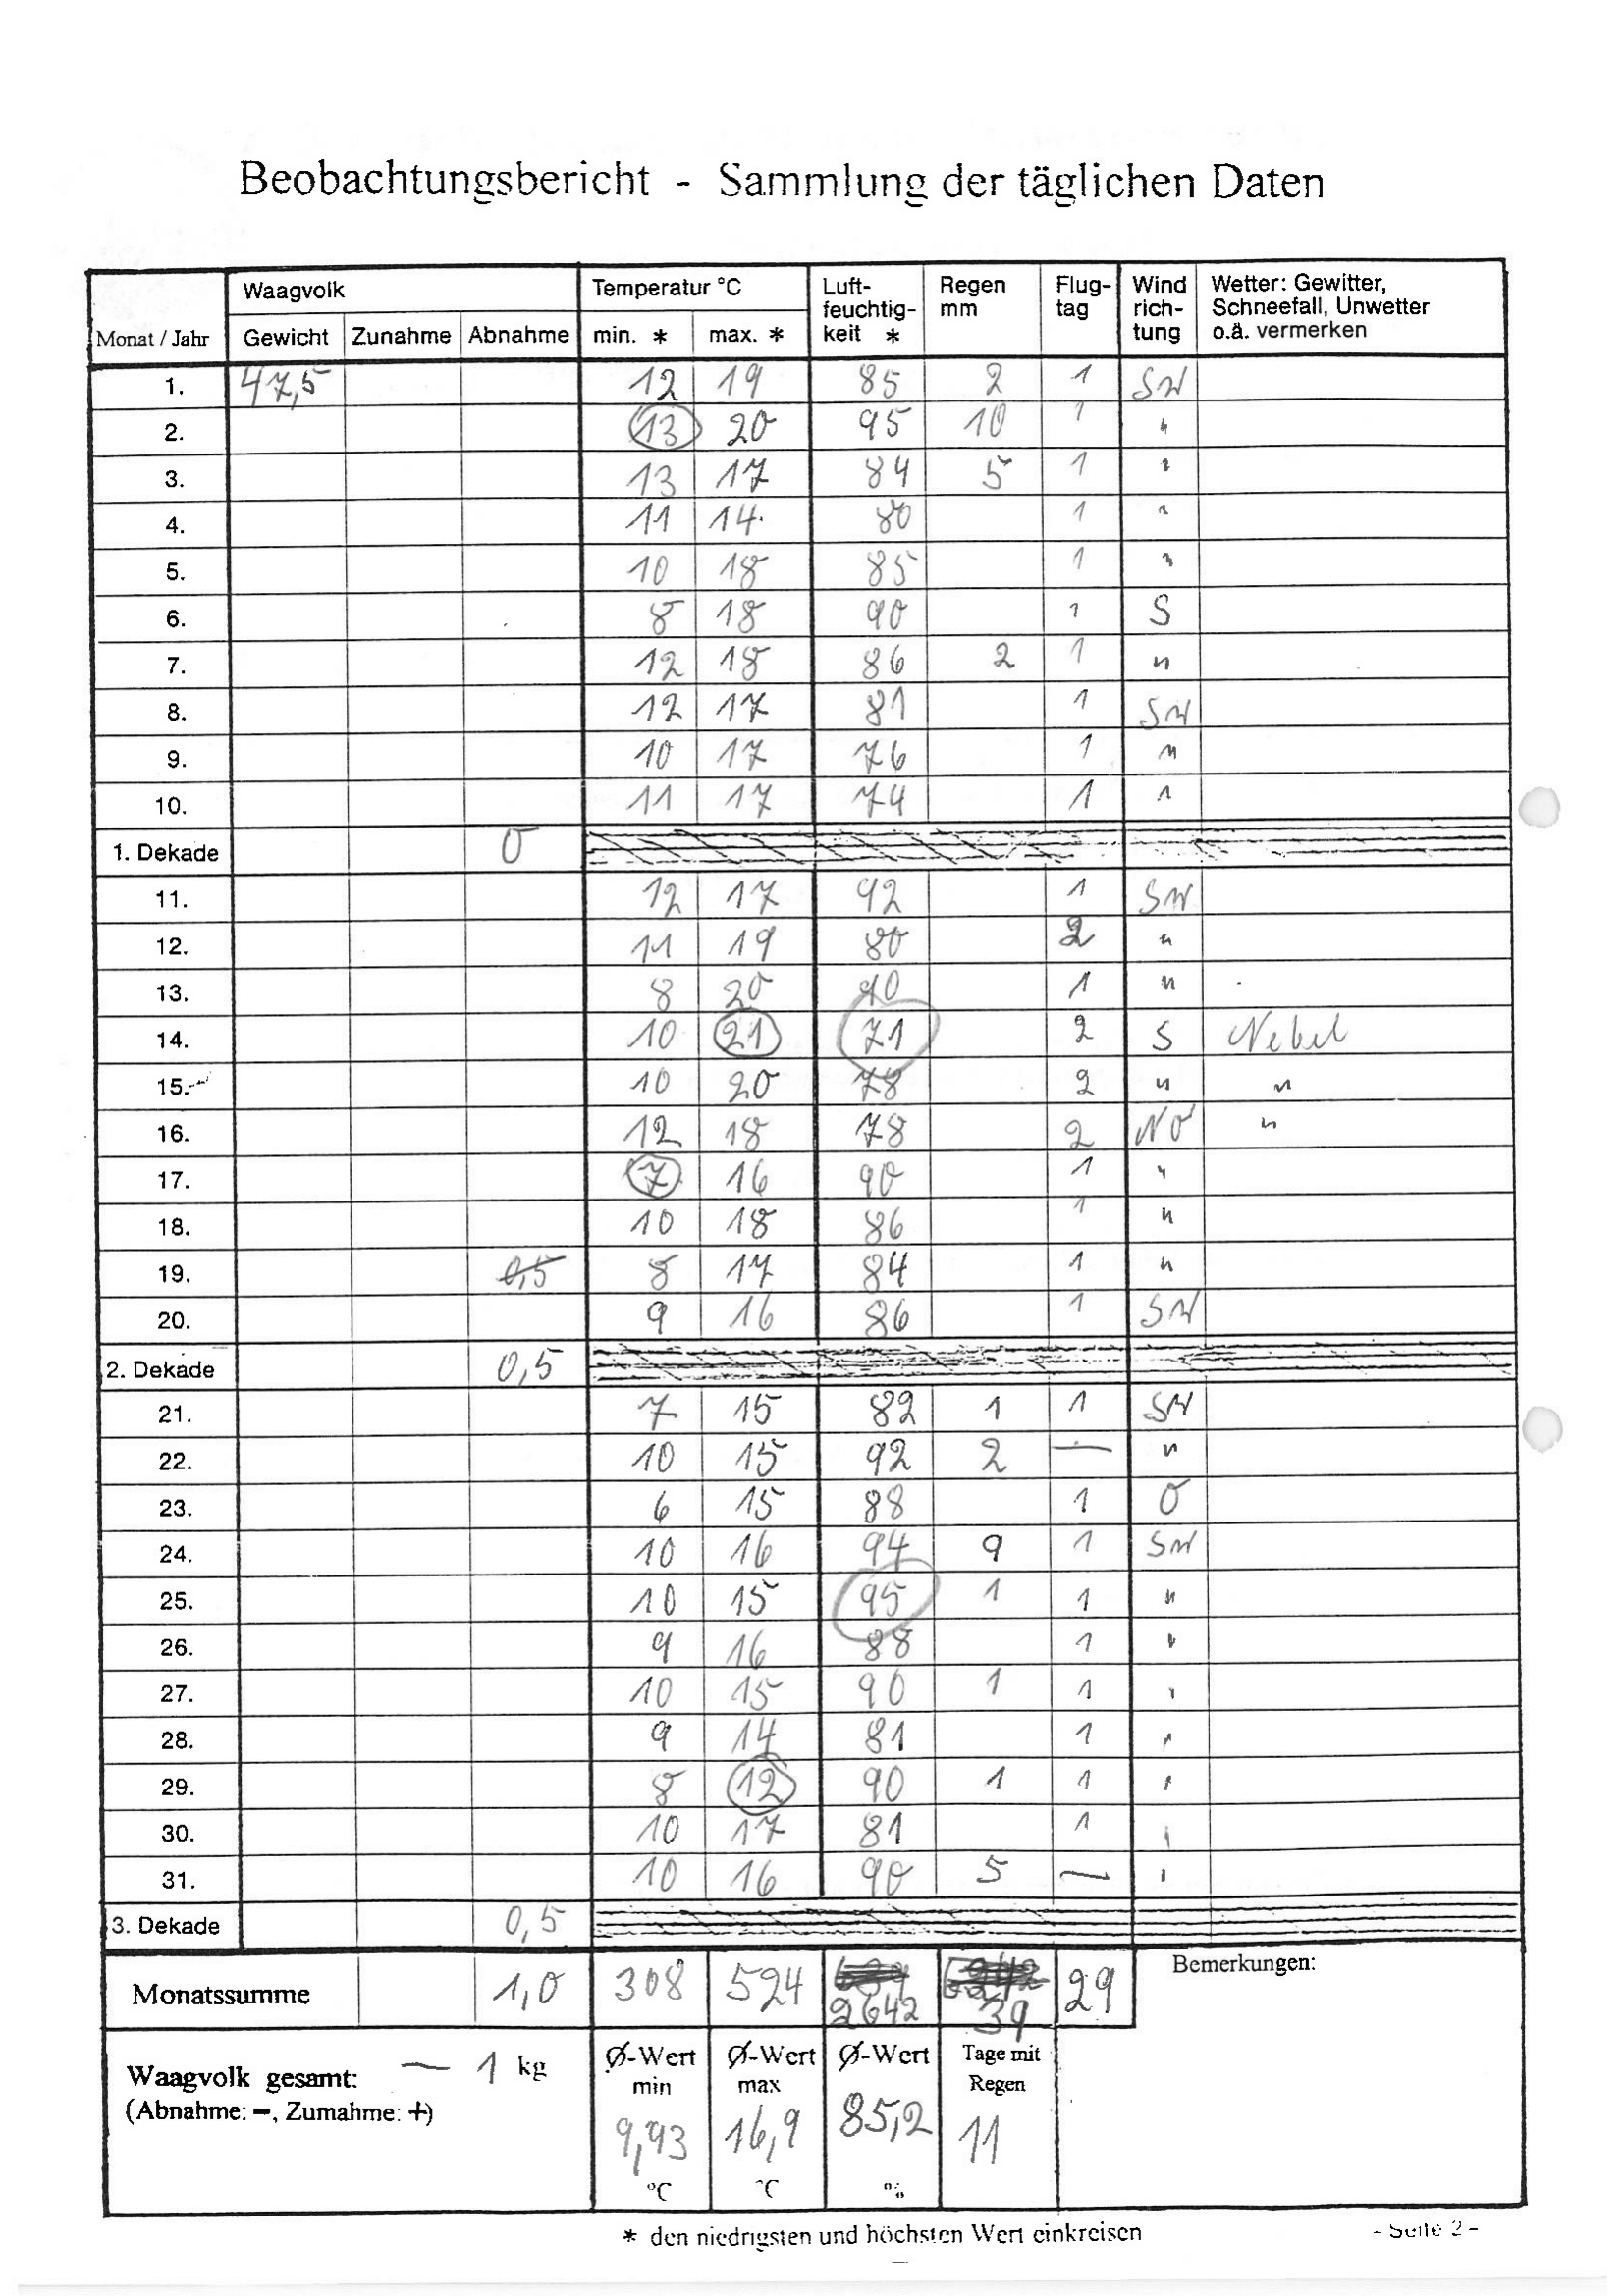 Beobachtungsbericht - Sammlung der täglichen Daten
Monat / Jahr Waagvolk Temperatur °C Luft- feuchtig- keit * Regen mm Flug- tag Wind rich- tung Wetter: Gewitter, Schneefall, Unwetter o.ä. vermerken
Gewicht Zunahme Abnahme min. * max. *
1. 47,5 12 19 85 2 1 SW
2. 13 20 95 10 1 "
3. 13 17 84 5 1 "
4. 11 14 80 1 "
5. 10 18 85 1 "
6. 8 18 90 1 S
7. 12 18 86 2 1 "
8. 12 17 81 1 SW
9. 10 17 76 1 "
10. 11 17 74 1 "
1. Dekade 0
11. 12 17 92 1 SW
12. 11 19 80 2 "
13. 8 20 90 1 "
14. 10 21 71 2 S Nebel
15. 10 20 78 2 " "
16. 12 18 78 2 NO "
17. 7 16 90 1 "
18. 10 18 86 1 "
19. 0,5 8 17 84 1 "
20. 9 16 86 1 SW
2. Dekade 0,5
21. 7 15 82 1 1 SW
22. 10 15 92 2 — "
23. 6 15 88 1 O
24. 10 16 94 9 1 SW
25. 10 15 95 1 1 "
26. 9 16 88 1 "
27. 10 15 90 1 1 "
28. 9 14 81 1 "
29. 8 12 90 1 1 "
30. 10 17 81 1 "
31. 10 16 90 5 — "
3. Dekade 0,5
Monatssumme 1,0 308 524 2642 39 29 Bemerkungen:
Waagvolk gesamt: — 1 kg
(Abnahme: -, Zumahme: +)
Ø-Wert min Ø-Wert max Ø-Wert Tage mit Regen
9,93 16,9 85,2 11
°C °C %
* den niedrigsten und höchsten Wert einkreisen
- Seite 2 -